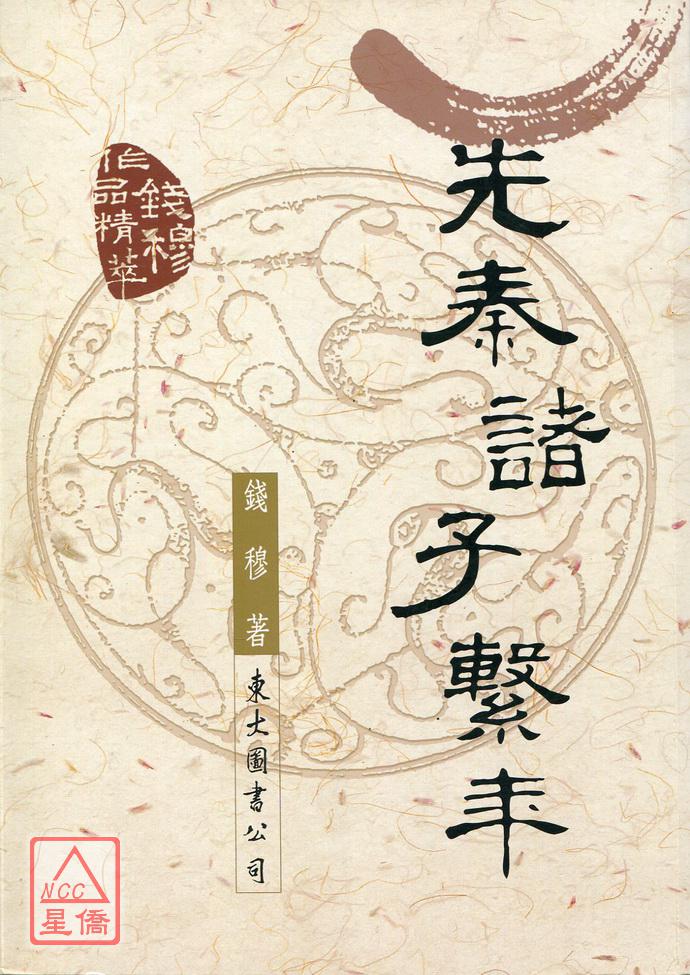 先秦諸子繫年
錢穆
作品精萃
錢穆 著
東大圖書公司
NCC
星僑